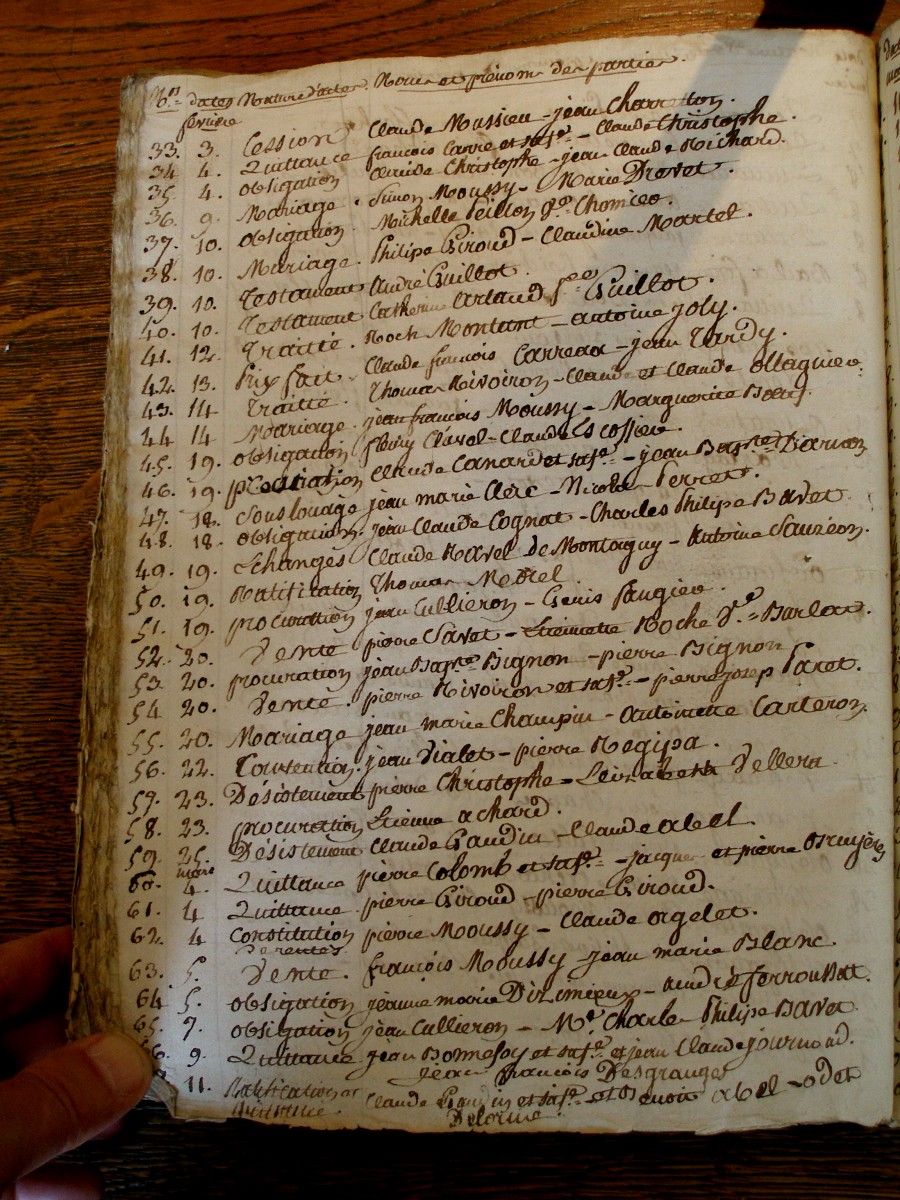 Nos dates Nature d'actes Noms et prénoms des parties.
février
33. 3. Cession Claude Mussieu - jean Charretton.
34 4. Quittance françois Carre et sa fe. - Claude Christophe.
35. 4. obligation Claude Christophe - jean Claude Richard.
36. 9. Mariage. Simon Moussy - Marie Drevet.
37. 10. obligation. Michelle Peillon Ve. Chomier.
38. 10. Mariage. Philipe Giroud - Claudine Martel.
39. 10. Testament André Guillot.
40. 10. Testament Catherine Arlaud fe. Guillot.
41. 12. Traitté. Roch Montant - antoine joly.
42. 13. Prix fait. Claude françois Carreau - jean Tardy.
43. 14 Traitté. Thomas Rivoiron - Claude et Claude ollagnier.
44 14 Mariage. jean françois Moussy - Marguerite Bœuf.
45. 19. obligation fleury Clavel - Claude Escoffier.
46. 19. procuration Claude Canard et sa fe. - jean Bapte.
47. 18. Souslouage jean marie Clerc - Nicolas Perret.
48. 18. obligation. jean Claude Cognat - Charles Philipe Bavet.
49. 19. Echanges Claude Ravel de Montagny - Antoine Sauzéon.
50. 19. Ratification Thomas Merrel.
51. 19. procuration jean Cullieron - Genis Paugier.
52. 20. Vente pierre Savet - Etiennette Roche Ve. Barlas.
53 20. procuration jean Bapte. Bignon - pierre Bignon
54 20. Vente. pierre Rivoiron et sa fe. - pierre josep Paret.
55. 20. Mariage jean marie Champin - Antoinette Carteron.
56. 22. Convention. jean Vialet - pierre Regipa.
57. 23. Désistement pierre Christophe - Elisabeth Vellera
58. 23. procuration Etienne achard.
59. 25. Désistement Claude Gaudin - Claude abell.
mars
60. 4. Quittance pierre Colomb et sa fe. - jacques et pierre Bruyères
61. 4 Quittance. pierre Giroud - pierre Giroud.
62. 4 Constitution pierre Moussy - Claude ogelet.
de rentes
63. 5. Vente. françois Moussy - jean marie Blanc.
64 5. obligation jeanne marie Dizimieux - andré ferroussat.
65. 7. obligation jean Cullieron - Me. Charles Philipe Bavet.
66. 9. Quittance jean Bonnefoy et sa fe. et jean Claude journoud.
jean françois Desgranges
11. Ratification et Claude Gaudin et sa fe. et Benoit abel - odet
quittance. Delorme.